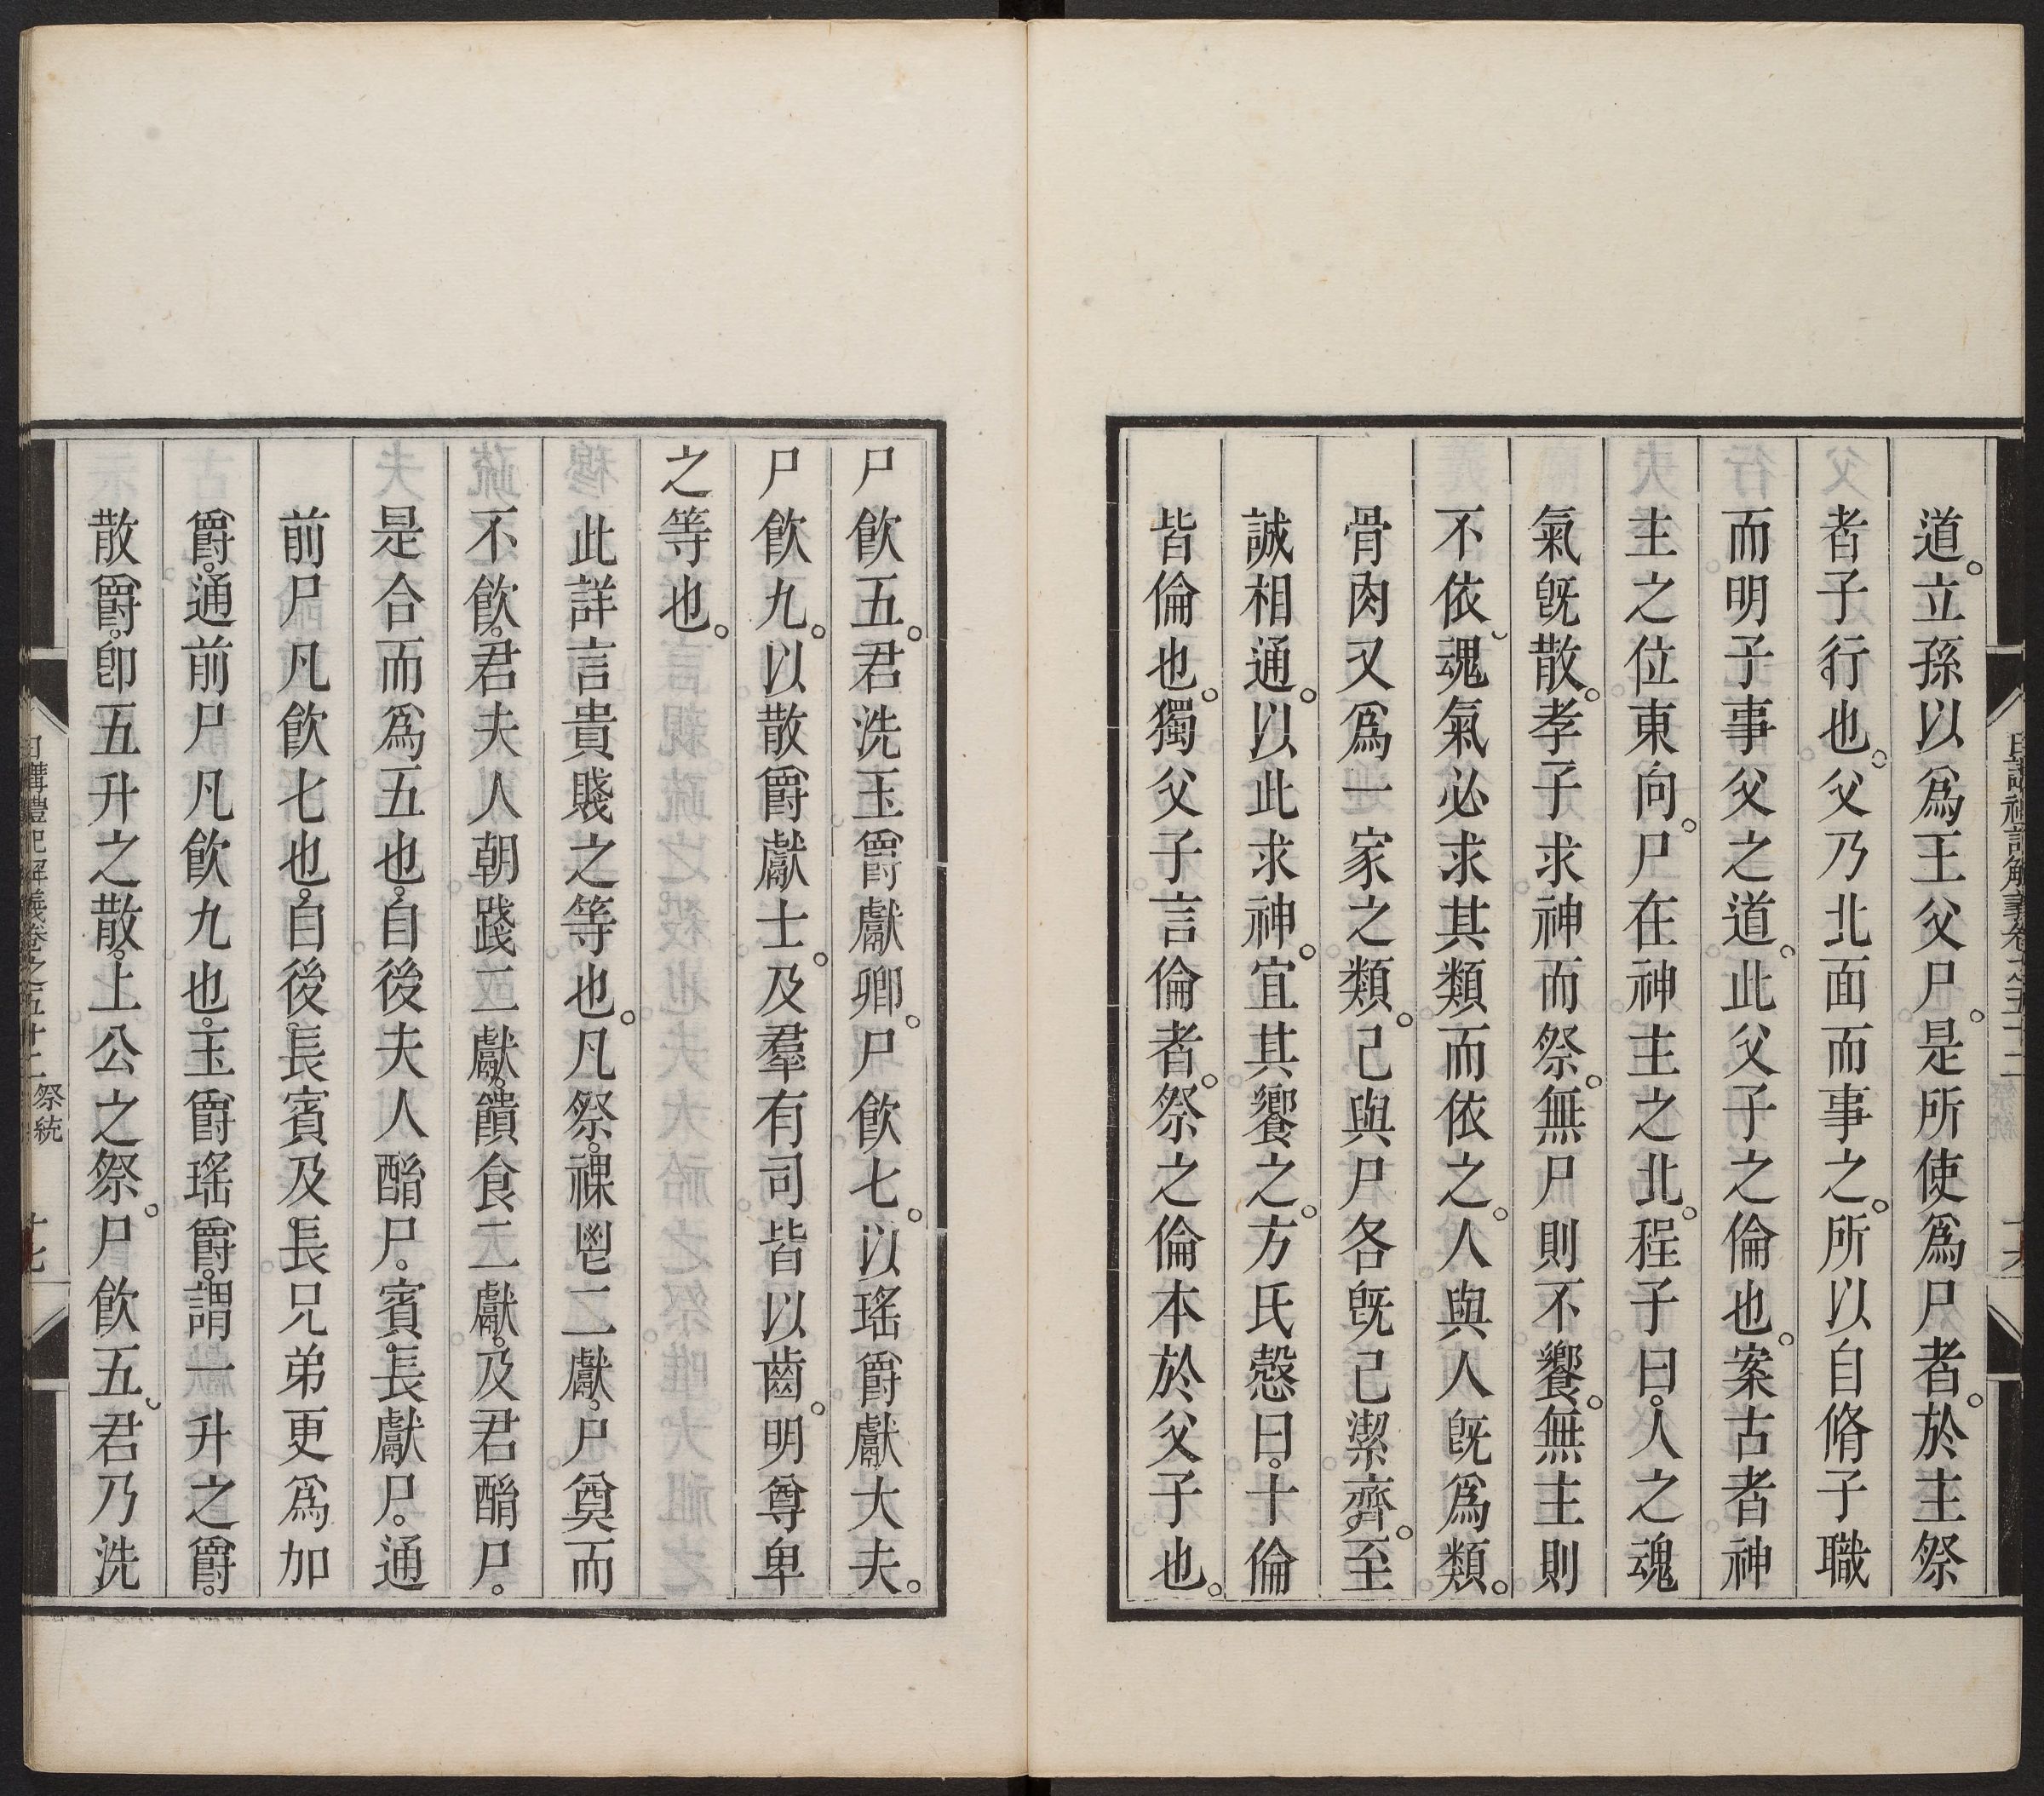 道。立孫以爲王父尸。是所使爲尸者。於主祭
者子行也。父乃北面而事之。所以自脩子職
而明子事父之道。此父子之倫也。案古者神
主之位東向。尸在神主之北。程子曰。人之魂
氣旣散。孝子求神而祭。無尸則不饗。無主則
不依。魂氣必求其類而依之。人與人旣爲類。
骨肉又爲一家之類。己與尸各旣己潔齊。至
誠相通。以此求神。宜其饗之。方氏慤曰。十倫
皆倫也。獨父子言倫者。祭之倫本於父子也。
尸飮五。君洗玉爵獻卿。尸飮七。以瑤爵獻大夫。
尸飮九。以散爵獻士。及羣有司皆以齒。明尊卑
之等也。
此詳言貴賤之等也。凡祭。祼鬯二獻。尸奠而
不飮。君夫人朝踐二獻。饋食二獻。及君酳尸。
是合而爲五也。自後夫人酳尸。賓長獻尸。通
前尸凡飮七也。自後。長賓及長兄弟更爲加
爵。通前尸凡飮九也。玉爵瑤爵。謂一升之爵。
散爵。卽五升之散。上公之祭。尸飮五。君乃洗
日講禮記解義卷之五十二 祭統 十七